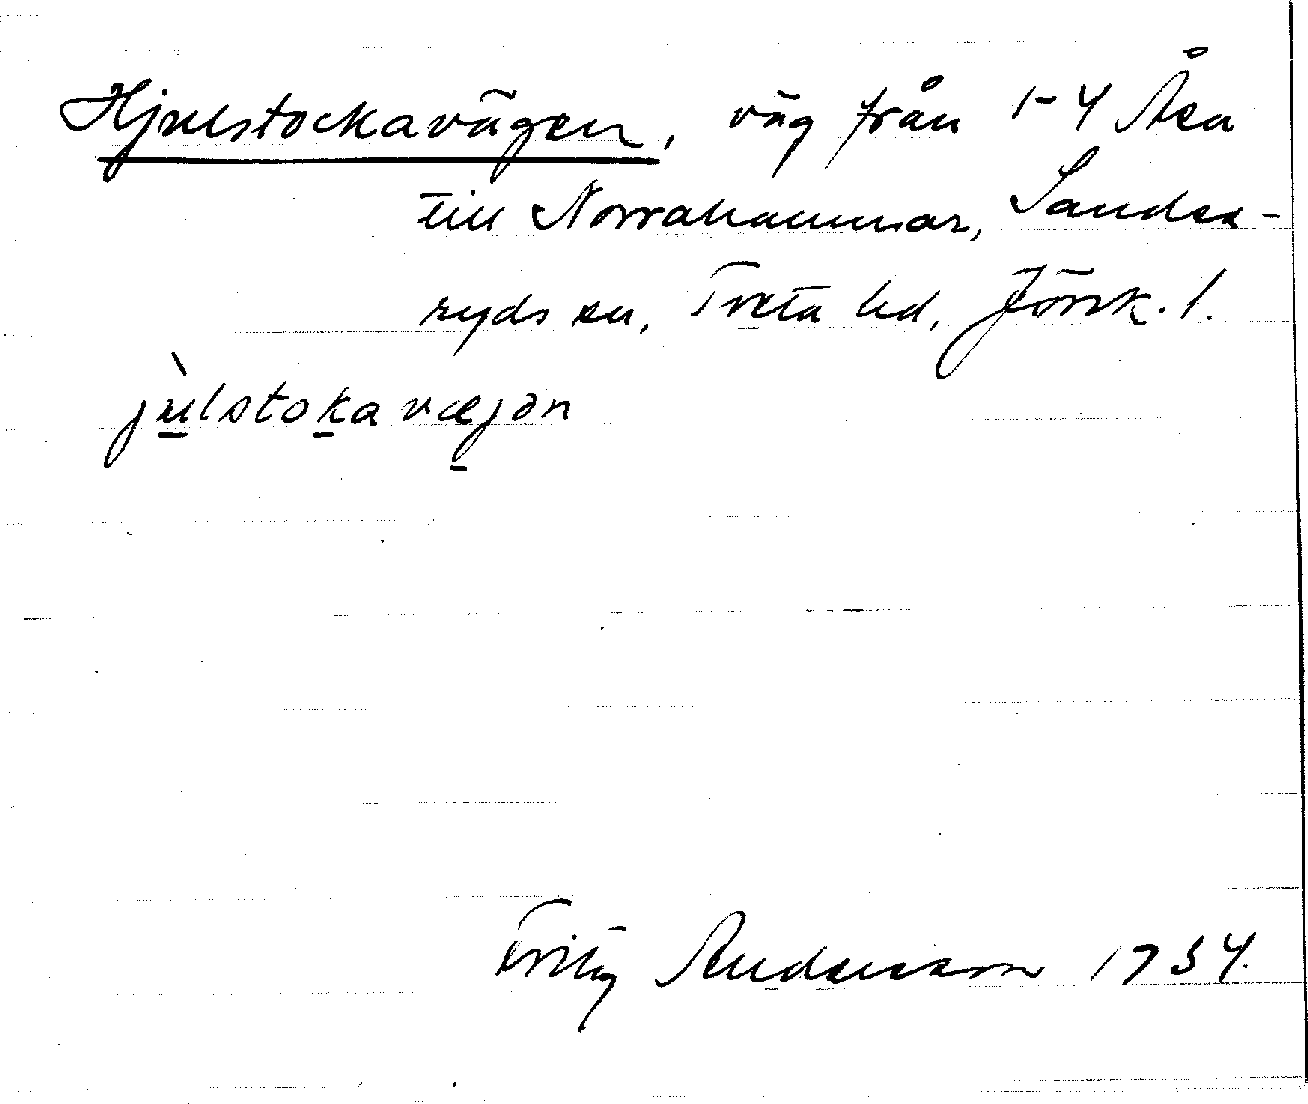 Hjulstockavägen, väg från 1-4 Åsa
till Norrahammar, Sandse-
ryds sn, Tveta hd, Jönk. l.
jùlstokavæjən
Fritz Andersson 1934.